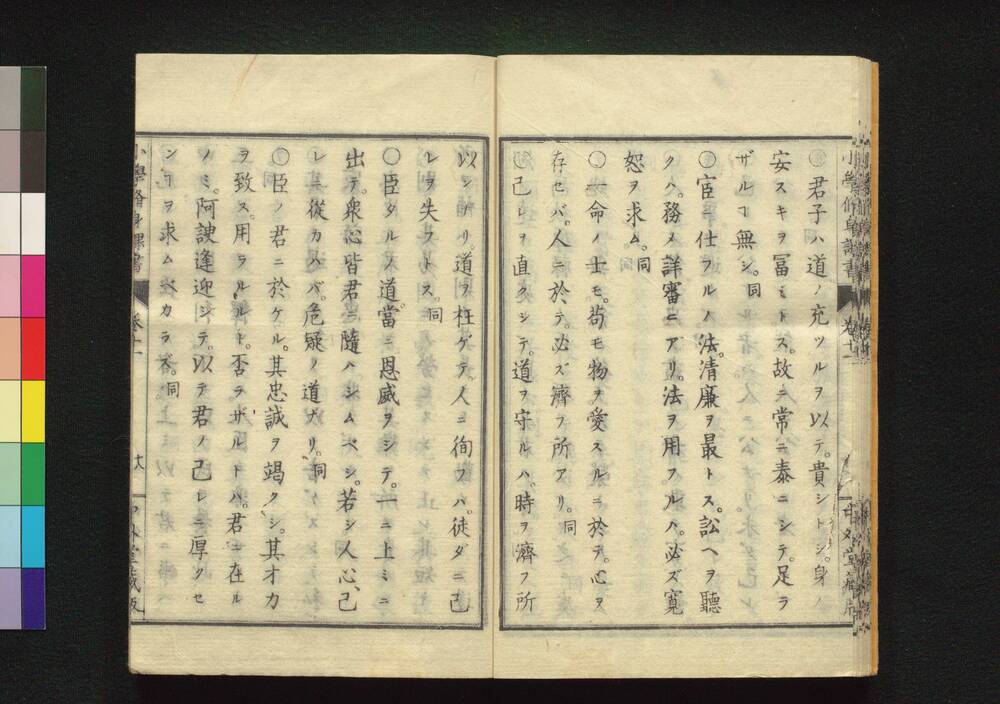 〇君子ハ道ノ充ツルヲ以テ。貴シトシ。身ノ
安スキヲ冨ミトス。故ニ常ニ泰ニシテ。足ラ
ザルヿ無シ。同
〇宦ニ仕フルノ法。清廉ヲ最トス。訟ヘヲ聽
クハ。務メ詳審ニアリ。法ヲ用フルハ。必ズ寛
恕ヲ求ム。同
〇一命ノ士モ。苟モ物ヲ愛スルニ於テ。心ヲ
存セバ。人ニ於テ。必ズ濟フ所アリ。同
〇己レヲ直クシテ。道ヲ守ルハ。時ヲ濟フ所
以ンナリ。道ヲ枉ゲテ。人ニ徇フハ。徒ダニ己
レヲ失フトス。同
〇臣タルノ道。當ニ恩威ヲシテ。一ニ上ミニ
出テ。衆心皆君ニ隨ハシムベシ。若シ人心己
レニ從カハバ。危疑ノ道ナリ。同
〇臣ノ君ニ於ケル。其忠誠ヲ竭クシ。其才カ
ヲ致ス。用ヲルルト。否ラザルトハ。君ニ在ル
ノミ。阿諛逢迎シテ。以テ君ノ己レニ厚クセ
ンヿヲ求ムベカラズ。同
小學脩身課書 卷十一